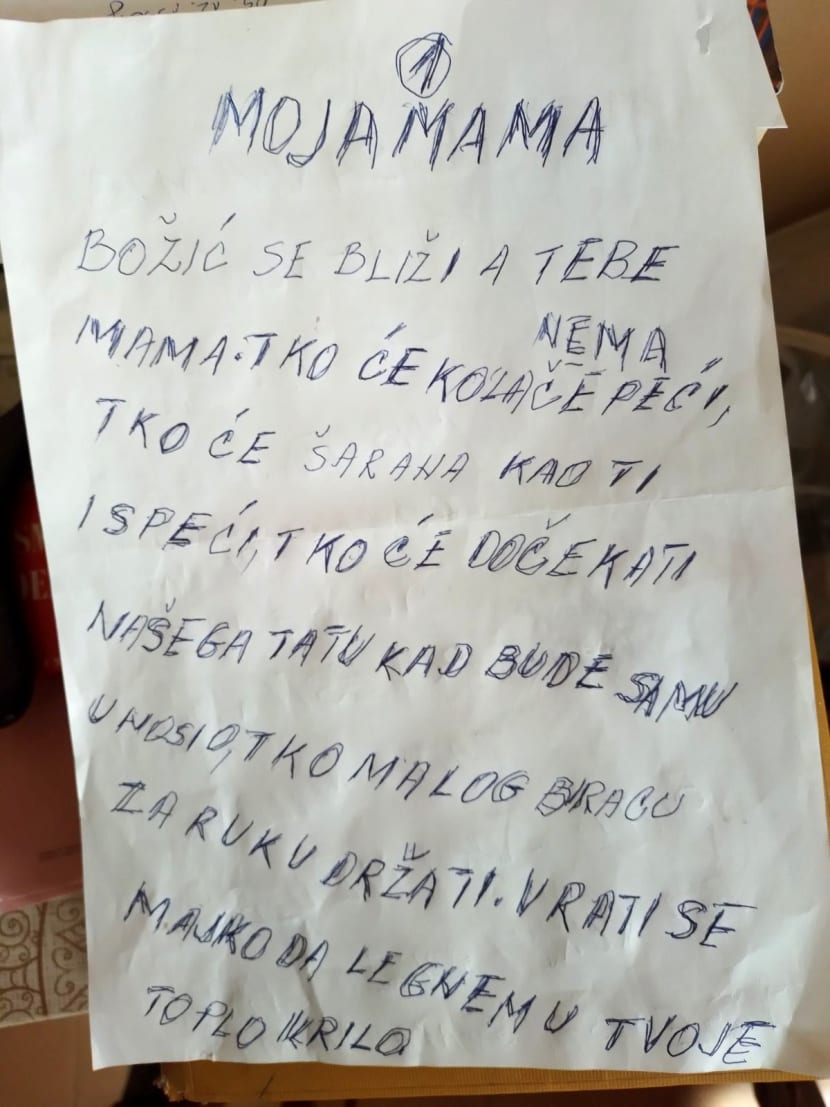 1
MOJA MAMA
BOŽIĆ SE BLIŽI A TEBE
NEMA
MAMA. TKO ĆE KOLAČE PEĆI,
TKO ĆE ŠARANA KAO TI
ISPEĆI, TKO ĆE DOČEKATI
NAŠEGA TATU KAD BUDE SAMU
UNOSIO, TKO MALOG BRACU
ZA RUKU DRŽATI. VRATI SE
MAJKO DA LEGNEM U TVOJE
TOPLO KRILO